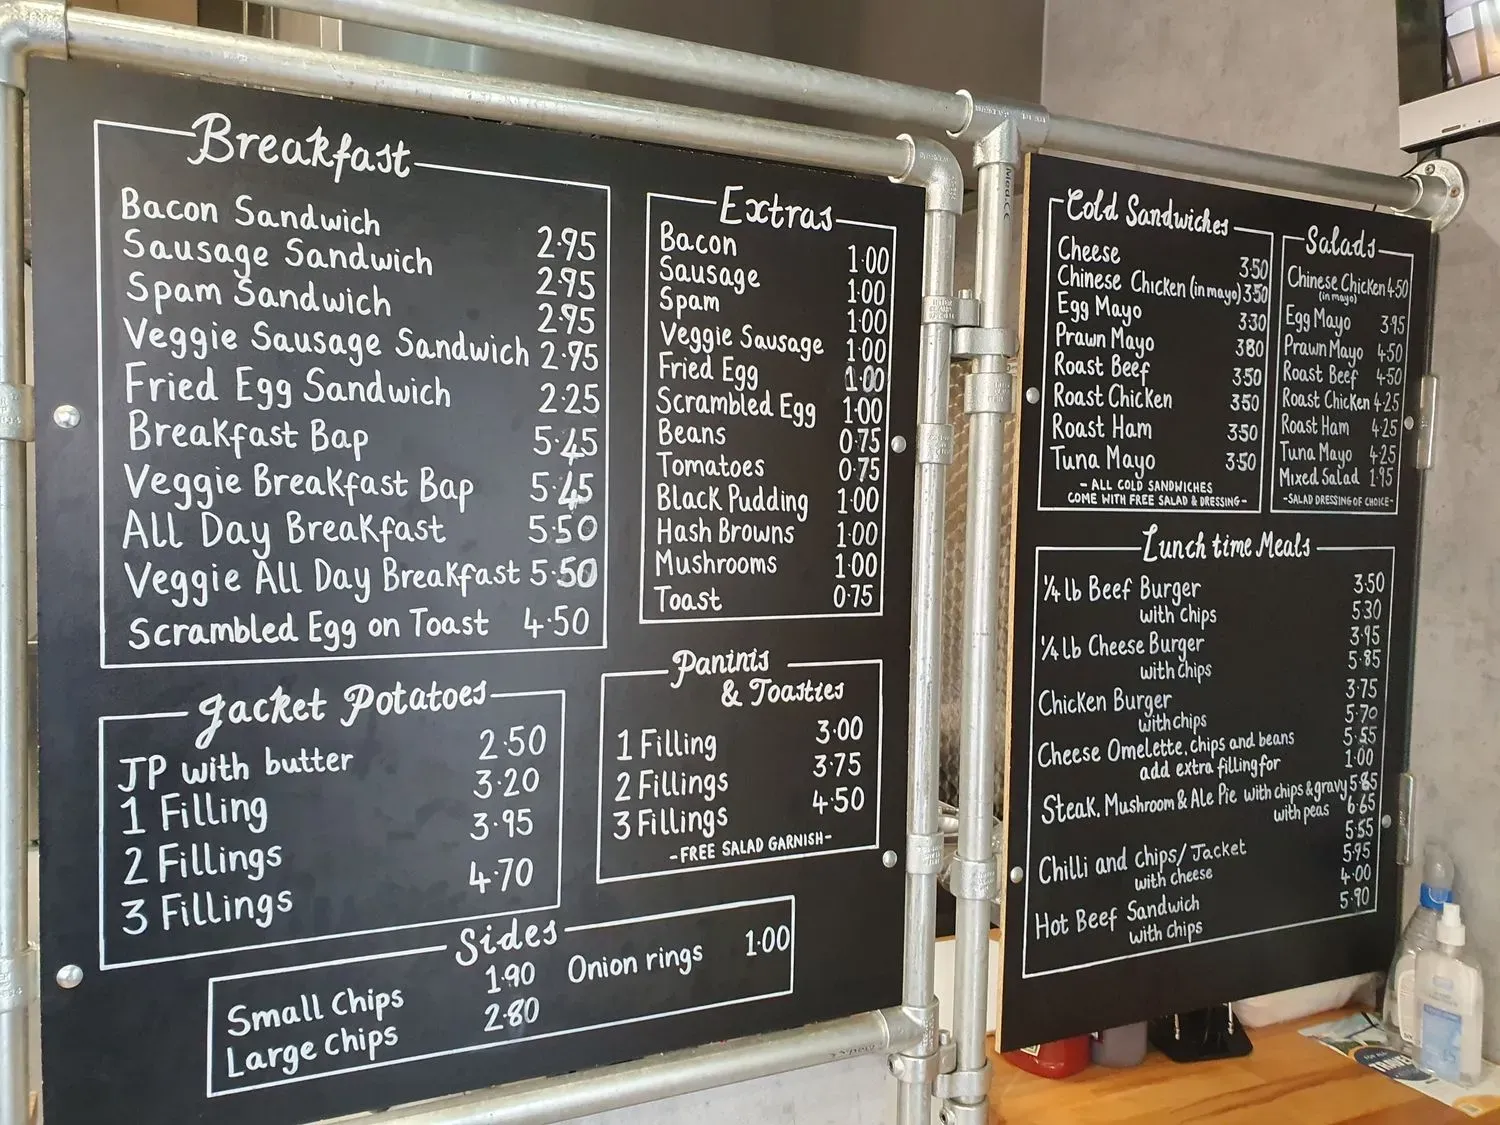 Breakfast
Bacon Sandwich 2.95
Sausage Sandwich 2.95
Spam Sandwich 2.95
Veggie Sausage Sandwich 2.95
Fried Egg Sandwich 2.25
Breakfast Bap 5.45
Veggie Breakfast Bap 5.45
All Day Breakfast 5.50
Veggie All Day Breakfast 5.50
Scrambled Egg on Toast 4.50
Extras
Bacon 1.00
Sausage 1.00
Spam 1.00
Veggie Sausage 1.00
Fried Egg 1.00
Scrambled Egg 1.00
Beans 0.75
Tomatoes 0.75
Black Pudding 1.00
Hash Browns 1.00
Mushrooms 1.00
Toast 0.75
Jacket Potatoes
JP with butter 2.50
1 Filling 3.20
2 Fillings 3.95
3 Fillings 4.70
Paninis
& Toasties
1 Filling 3.00
2 Fillings 3.75
3 Fillings 4.50
-FREE SALAD GARNISH-
Sides
Small Chips 1.90 Onion rings 1.00
Large Chips 2.80
Cold Sandwiches
Cheese 3.50
Chinese Chicken (in mayo) 3.50
Egg Mayo 3.30
Prawn Mayo 3.80
Roast Beef 3.50
Roast Chicken 3.50
Roast Ham 3.50
Tuna Mayo 3.50
- ALL COLD SANDWICHES
COME WITH FREE SALAD & DRESSING -
Salads
Chinese Chicken 4.50
(in mayo)
Egg Mayo 3.95
Prawn Mayo 4.50
Roast Beef 4.50
Roast Chicken 4.25
Roast Ham 4.25
Tuna Mayo 4.25
Mixed Salad 1.95
-SALAD DRESSING OF CHOICE-
Lunch time Meals
1/4 lb Beef Burger 3.50
with chips 5.30
1/4 lb Cheese Burger 3.95
with chips 5.85
Chicken Burger 3.75
with chips 5.70
Cheese Omelette, chips and beans 5.55
add extra filling for 1.00
Steak, Mushroom & Ale Pie with chips & gravy 5.85
with peas 6.65
Chilli and chips/Jacket 5.55
with cheese 5.95
Hot Beef Sandwich 4.00
with chips 5.90